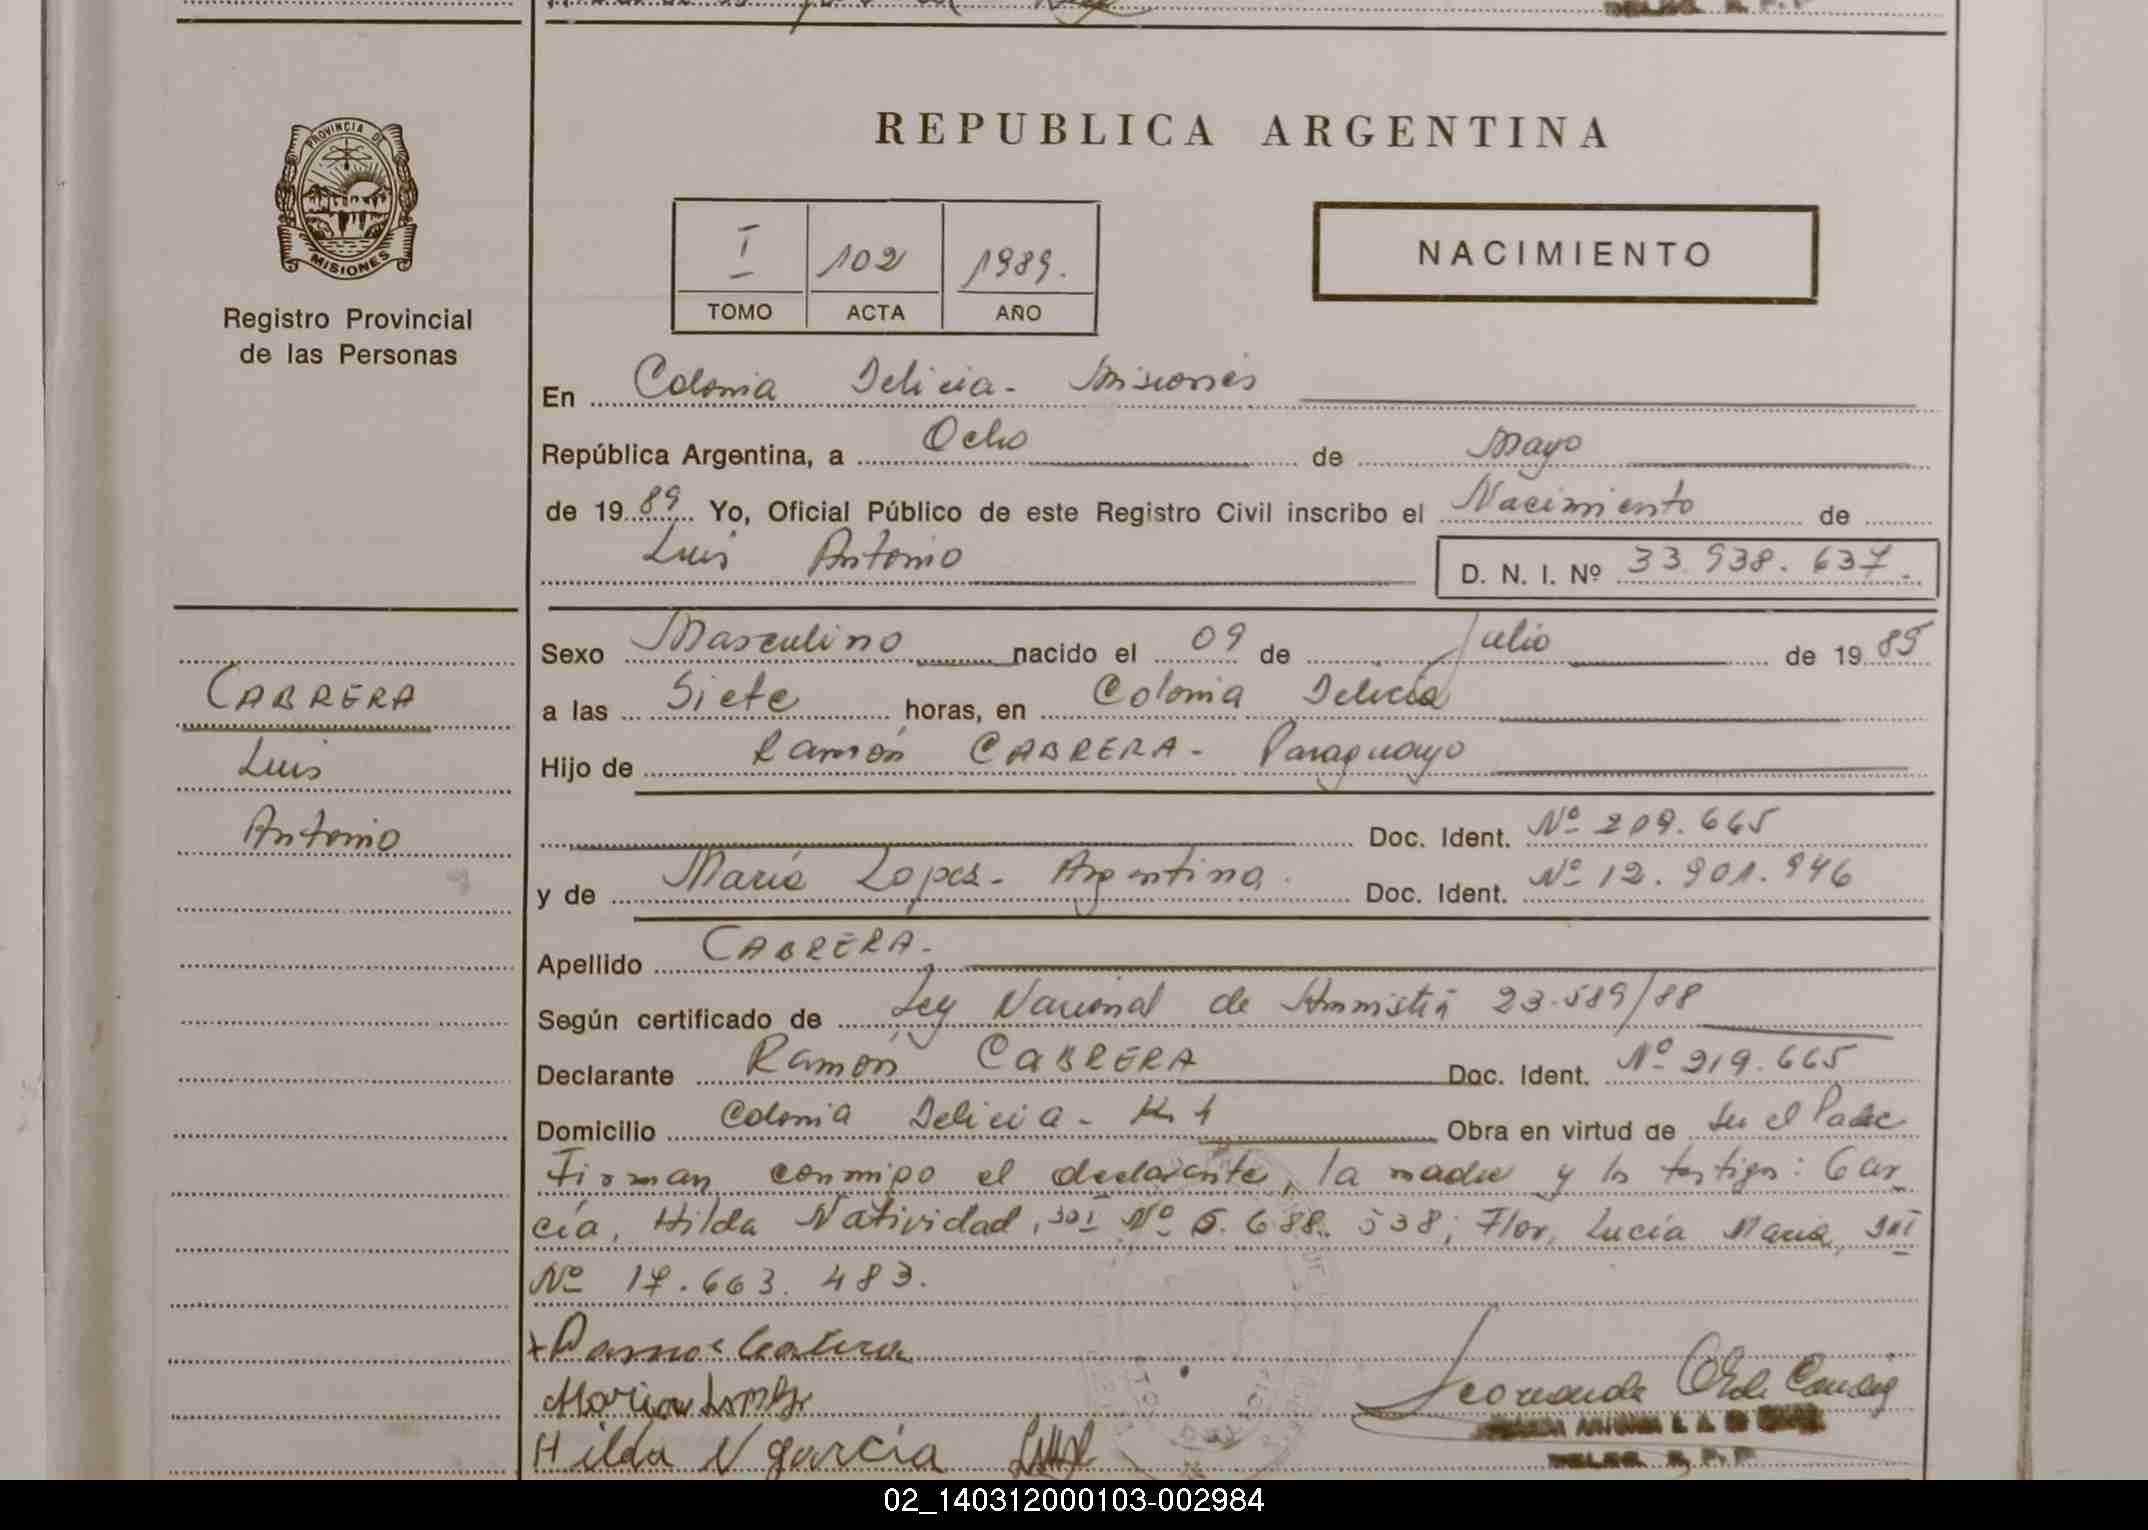 PROVINCIA DE
MISIONES
Registro Provincial
de las Personas
REPUBLICA ARGENTINA
I 102 1989.
TOMO ACTA AÑO
NACIMIENTO
En Colonia Delicia - Misiones
República Argentina, a Ocho de Mayo
de 1989 Yo, Oficial Público de este Registro Civil inscribo el Nacimiento de
Luis Antonio D. N. I. Nº 33 938. 637.
Sexo Masculino nacido el 09 de Julio de 1985
a las Siete horas, en Colonia Delicia
Hijo de Ramón CABRERA - Paraguayo
Doc. Ident. Nº 219.665
y de María Lopez - Argentina. Doc. Ident. Nº 12.901.946
Apellido CABRERA.-
Según certificado de Ley Nacional de Amnistía 23.589/88
Declarante Ramón CABRERA Doc. Ident. Nº 219.665
Domicilio Colonia Delicia - K. 1 Obra en virtud de ser el Padre
Firman conmigo el declarante, la madre y los testigos: Gar
cía, Hilda Natividad, DNI Nº 5.688.538; Flor, Lucía Maria, DNI
Nº 17.663.483.
CABRERA
Luis
Antonio
Hilda N garcía
02_140312000103-002984